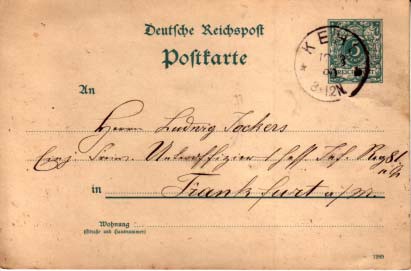 Deutsche Reichspost
Postkarte
KEH
5
An
Herrn Ludwig Jockers
Einj. Freiw. Unteroffizier 1 Hess. Inf. Reg 81
in Frankfurt a/M.
Wohnung
(Straße und Hausnummer)